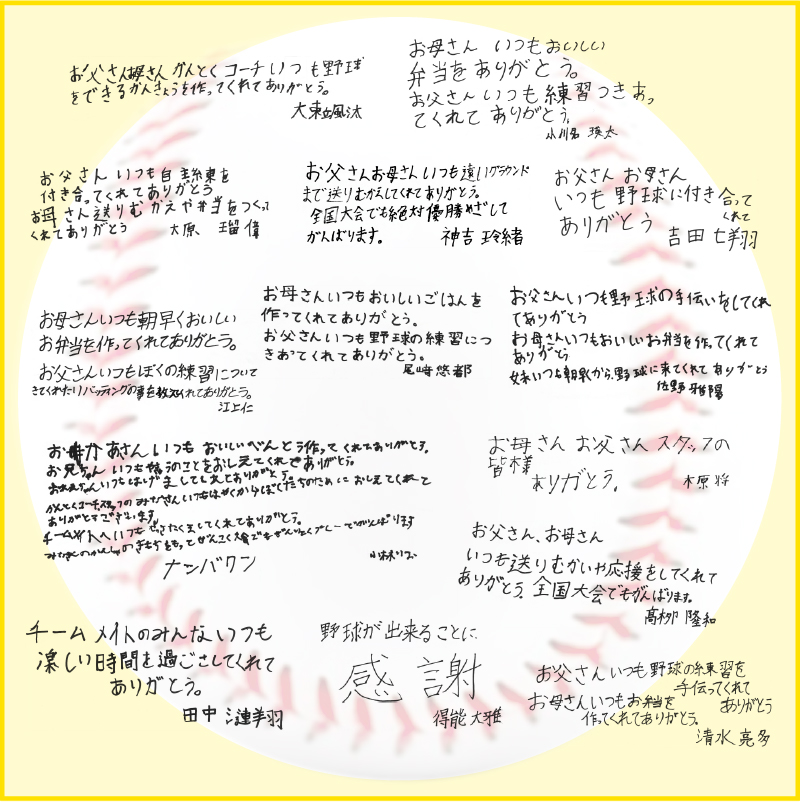 お父さんお母さん かんとく コーチ いつも野球
をできるかんきょうを作ってくれてありがとう。
大東颯汰
お母さん いつもおいしい
弁当をありがとう。
お父さんいつも練習つきあっ
てくれて ありがとう。
小川名 瑛太
お父さん いつも自主練を
付き合ってくれてありがとう
お母さん送りむかえや弁当をつくって
くれてありがとう
大原 瑠偉
お父さんお母さんいつも遠いグラウンド
まで送りむかえしてくれてありがとう。
全国大会でも絶対優勝めざして
がんばります。
神吉 玲緒
お父さん お母さん
いつも野球に付き合って
くれて
ありがとう
吉田 七翔
お母さんいつも朝早くおいしい
お弁当を作ってくれてありがとう。
お父さんいつもぼくの練習について
きてくれたりバッティングの事を教えてくれてありがとう。
江上仁
お母さんいつもおいしいごはんを
作ってくれてありがとう。
お父さんいつも野球の練習につ
きあってくれてありがとう。
尾崎悠都
お父さんいつも野球の手伝いをしてくれ
てありがとう
お母さんいつもおいしいお弁当を作ってくれて
ありがとう
妹いつも朝早くから、野球に来てくれてありがとう
佐野 雅陽
おかあさんいつも おいしいべんとう作ってくれてありがとう。
お兄ちゃん いつも をおしえてくれてありがとう。
いつもはげましてくれてありがとう。
かんとくコーチスタッフのみなさんいつもはやくからぼくたちのために おしえてくれて
ありがとうございます。
チームメイトへいつも してくれてありがとう。
きもちをもってぜんこく大会でもぜんりょくプレーでがんばります
ナンバワン
小林
お母さん お父さん スタッフの
皆様
ありがとう。
木原 将
お父さん、お母さん
いつも送りむかいや応援をしてくれて
ありがとう。全国大会でもがんばります。
髙栁 隆和
チームメイトのみんないつも
楽しい時間を過ごさしてくれて
ありがとう。
田中 漣翔
野球が出来ることに
感謝
得能大雅
お父さんいつも野球の練習を
手伝ってくれて
ありがとう
お母さんいつもお弁当を
作ってくれてありがとう。
清水 亮多